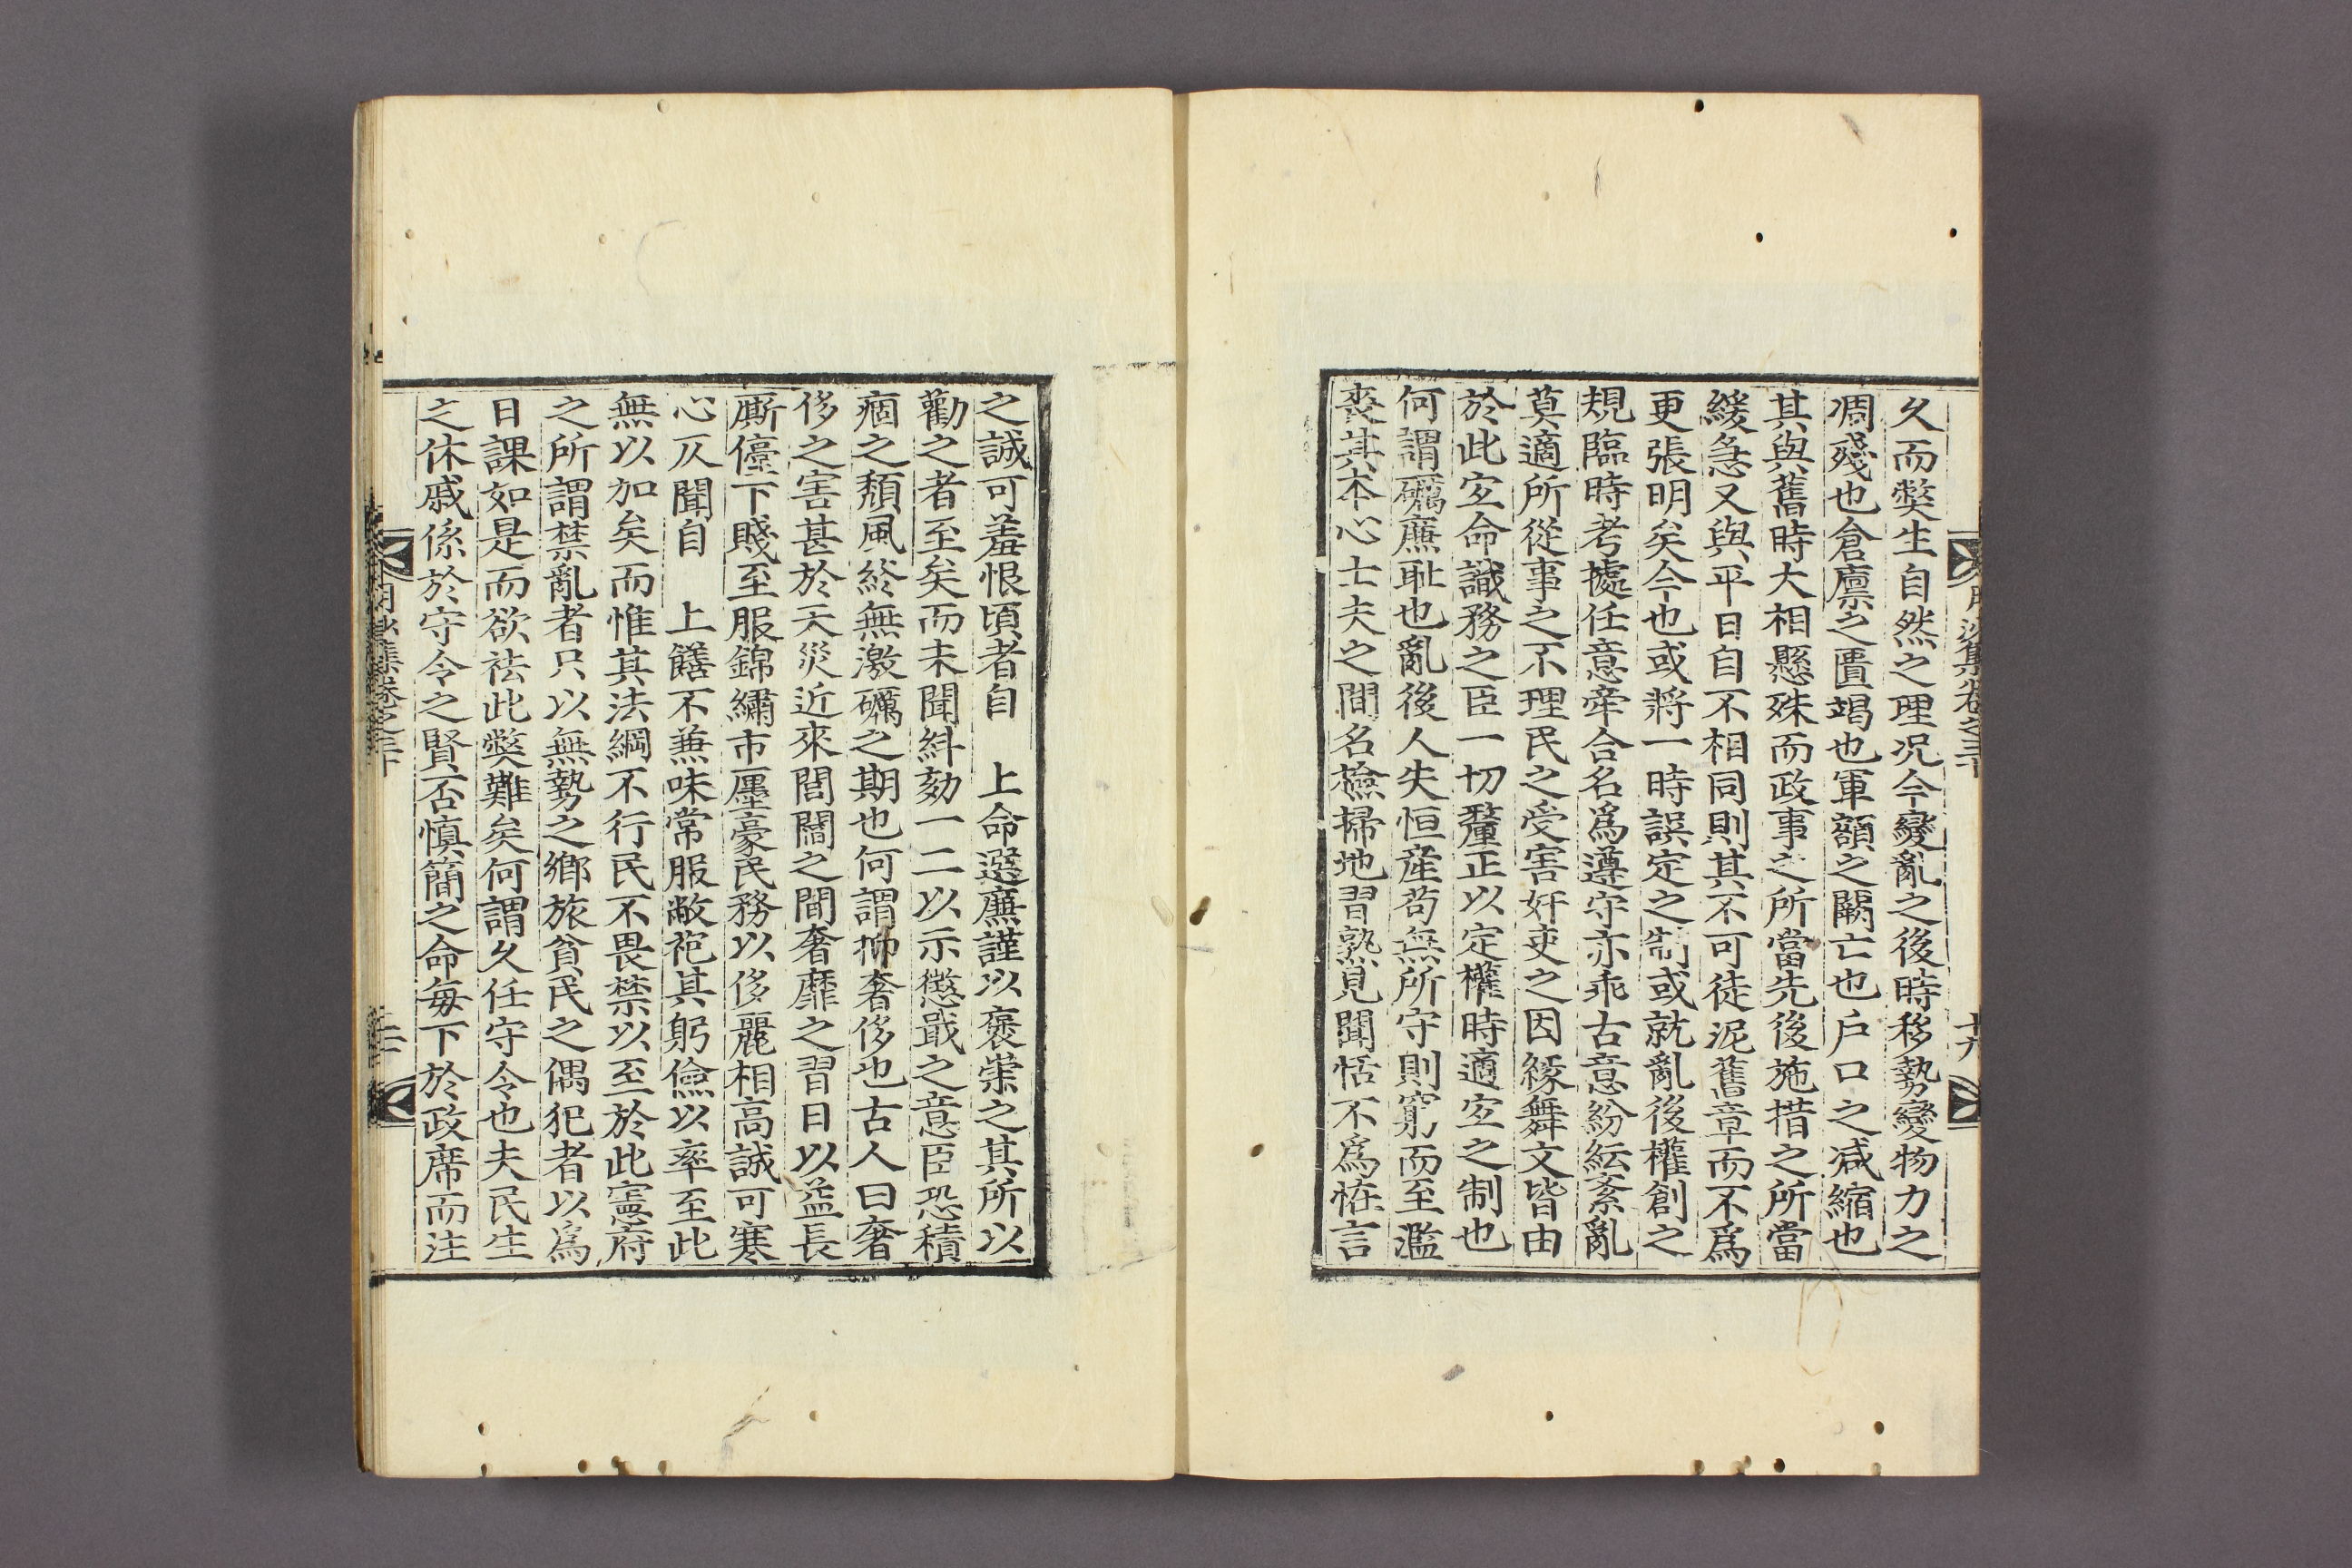 久而獘生自然之理况今變亂之後時移勢變物力之
凋殘也倉廩之匱竭也軍額之闕亡也戶口之减縮也
其與舊時大相懸殊而政事之所當先後施措之所當
緩急又與平日自不相同則其不可徒泥舊章而不爲
更張明矣今也或將一時誤定之制或就亂後權創之
規臨時考據任意牽合名爲遵守亦乖古意紛紜紊亂
莫適所從事之不理民之受害奸吏之因緣舞文皆由
於此宜命識務之臣一切釐正以定權時適宜之制也
何謂礪廉耻也亂後人失恒産苟無所守則窮而至濫
喪其本心士夫之間名檢掃地習熟見聞恬不爲恠言
之誠可羞恨頃者自　上命選廉謹以褒崇之其所以
勸之者至矣而未聞紏劾一二以示懲戢之意臣恐積
痼之頹風終無激礪之期也何謂抑奢侈也古人曰奢
侈之害甚於天災近來閭閻之間奢靡之習日以益長
廝儓下賤至服錦繡市廛豪民務以侈麗相高誠可寒
心仄聞自　上饍不兼味常服敝袍其躬儉以率至此
無以加矣而惟其法綱不行民不畏禁以至於此憲府
之所謂禁亂者只以無勢之鄕旅貧民之偶犯者以爲
日課如是而欲祛此獘難矣何謂久任守令也夫民生
之休戚係於守令之賢否愼簡之命每下於政席而注